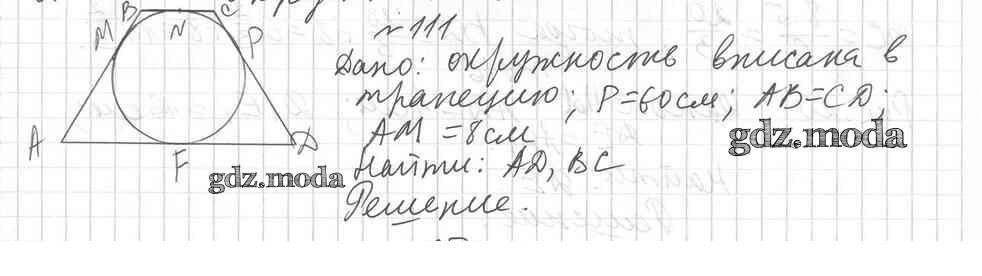 B C
M N P
A F D
№ 111
Дано: окружность вписана в
трапецию; P=60см; AB=CD;
AM =8см
gdz.moda
Найти: AD, BC
gdz.moda
Решение.